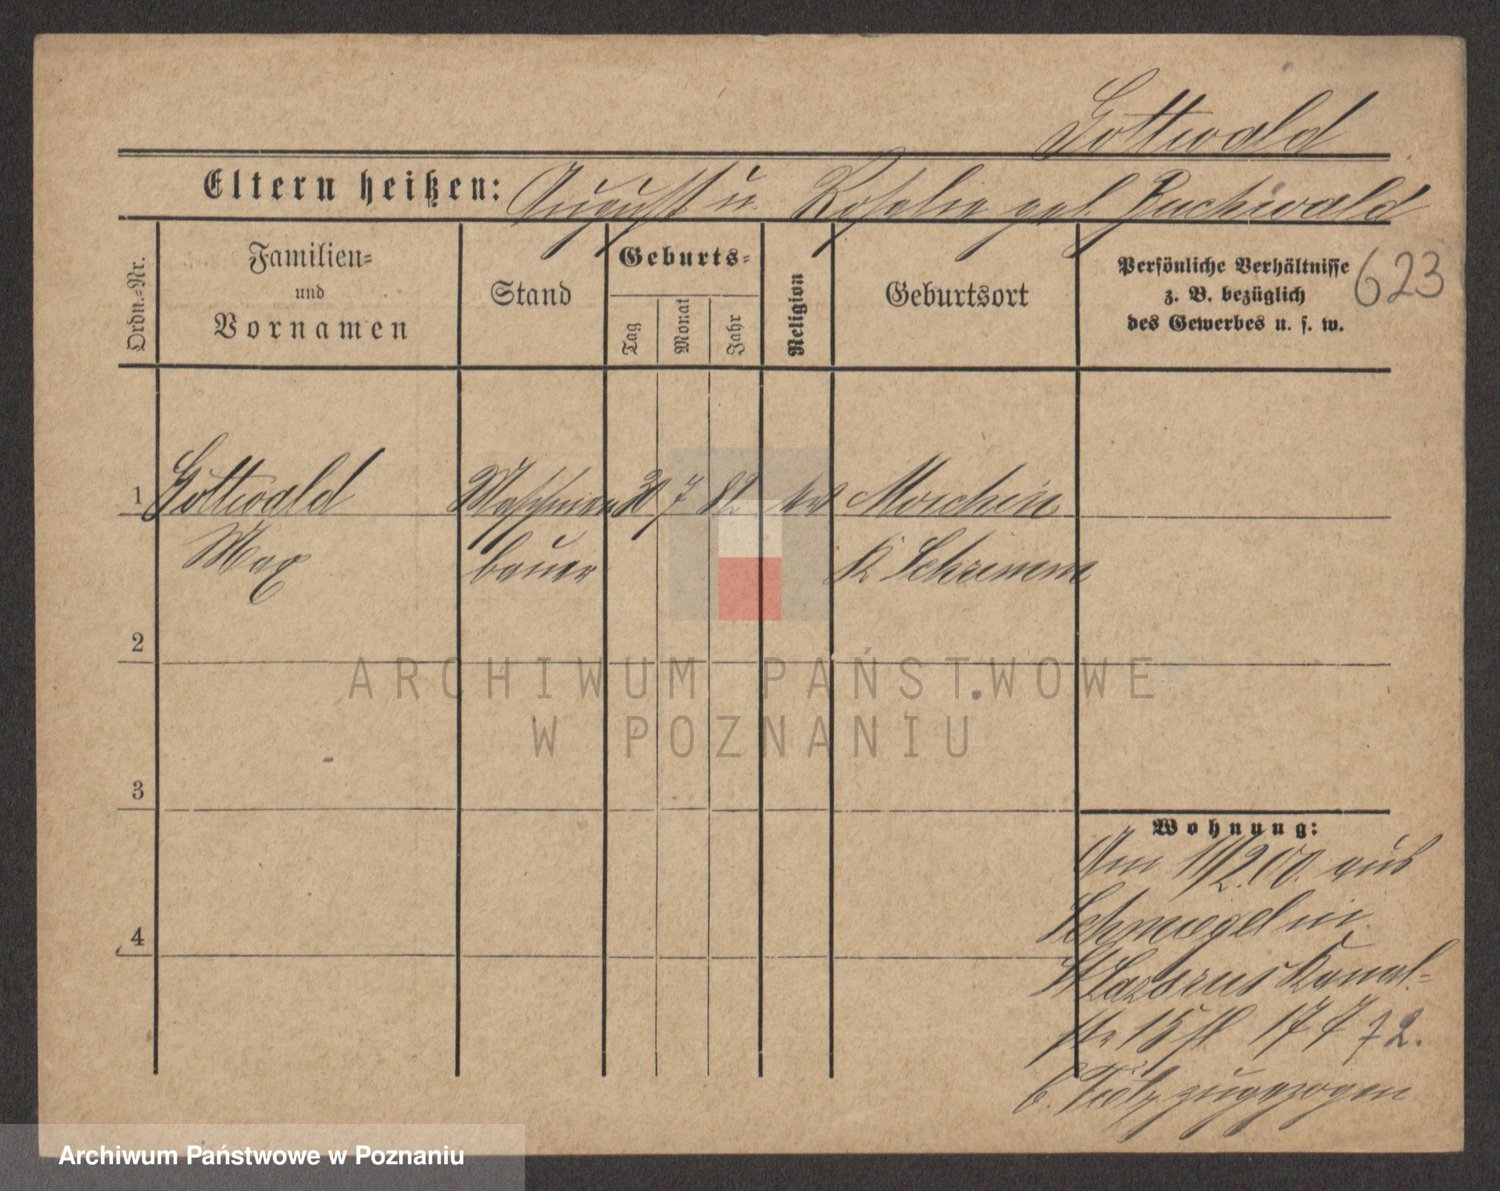 Gottwald
Eltern heißen: August u. Rosalie geb. Buchwald
Ordn.-Nr.
Familien- und Vornamen
Stand
Geburts-
Tag
Monat
Jahr
Religion
Geburtsort
Persönliche Verhältnisse
z. B. bezüglich
des Gewerbes u. s. w.
623
1 Gottwald Maschinen 30 7 82 Morschin
Max bauer K Schrimm
2
3
4
Wohnung:
Am 11/2.00. aus
Schmiegel in
St Lazarus Kanal-
str 15
b. zugezogen
ARCHIWUM PAŃSTWOWE
W POZNANIU
Archiwum Państwowe w Poznaniu